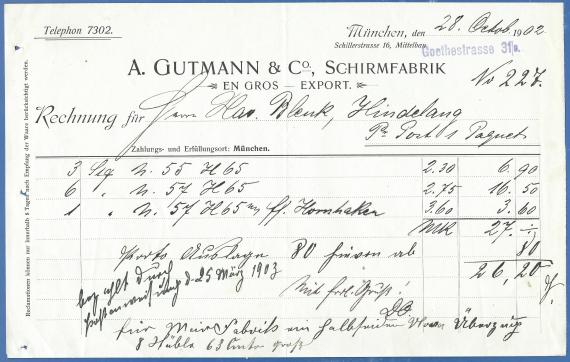 Telephon 7302.
München, den 28. Octob. 1902
Schillerstrasse 16, Mittelbau.
Goethestrasse 31/a.
A. GUTMANN & Co., SCHIRMFABRIK
EN GROS — EXPORT.
No 227.
Rechnung für Herrn Xav. Blenk, Hindelang
Pr Post 1 Paquet
Zahlungs- und Erfüllungsort: München.
3 Stg N. 55 H 65 2.30 6.90
6 " N. 57 H 65 2.75 16.50
1 " N. 57 H 65 m ff. Hornhaken 3.60 3.60
MK 27.-
Porto Auslage 80 hievon ab 80
26,20
bezahlt durch
Postanweisung d. 25 März 1903
Mit frdl. Gruß!
D.O
für Fabrik ein halbseiden Überzug
8 Stäble 63 Cmtr groß
Reclamationen können nur innerhalb 8 Tagen nach Empfang der Waare berücksichtigt werden.